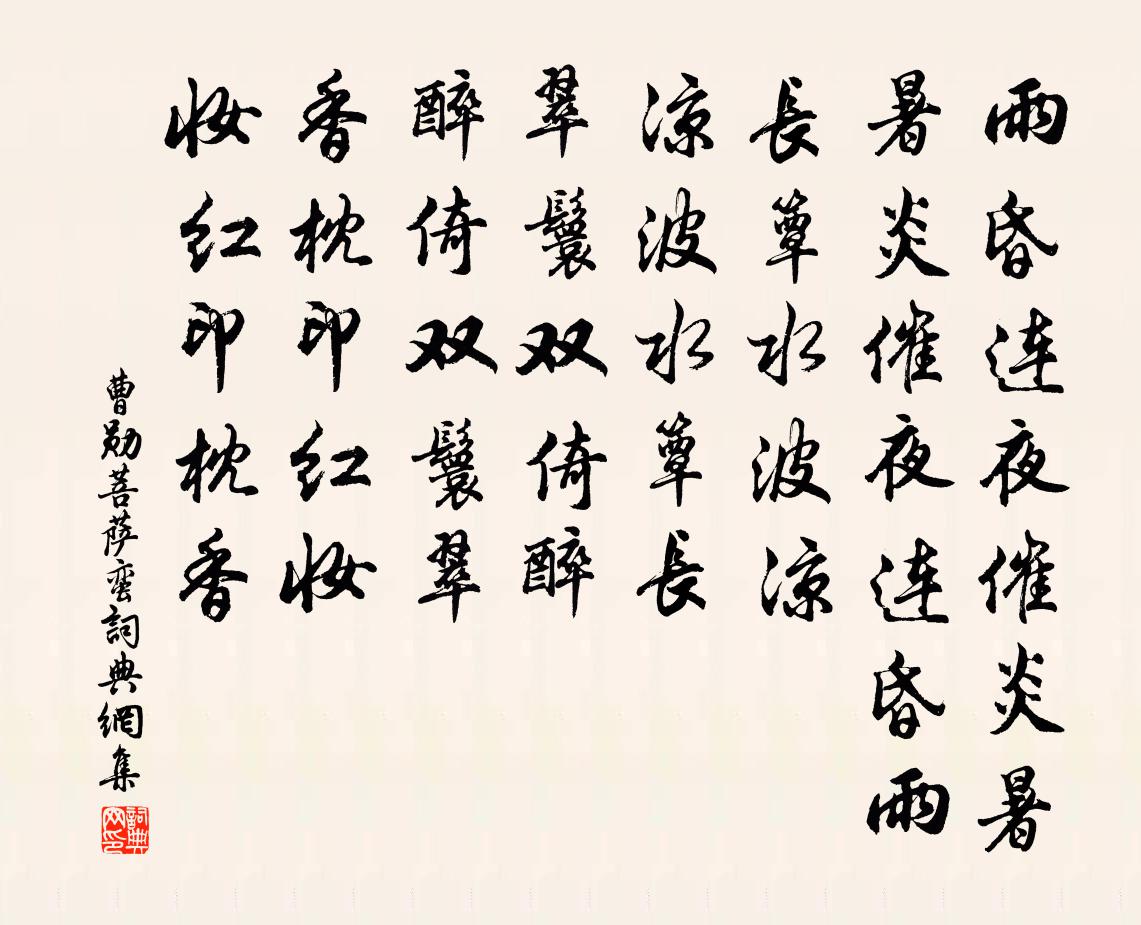 雨昏连夜催炎暑
暑炎催夜连昏雨
長簟水波凉
凉波水簟長
翠鬟双倚醉
醉倚双鬟翠
香枕印红妆
妆红印枕香
曹勋菩萨蛮詞典網集
詞典网印